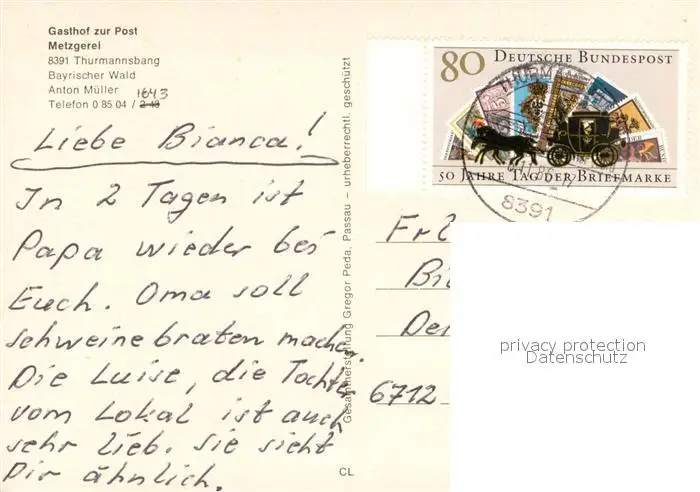 Gasthof zur Post
Metzgerei
8391 Thurmannsbang
Bayrischer Wald
Anton Müller 1643
Telefon 0 85 04 / 2 48
Liebe Bianca!
In 2 Tagen ist
Papa wieder bei
Euch. Oma soll
schweinebraten machen.
Die Luise, die Tochter
vom Lokal ist auch
sehr lieb. Sie sieht
Dir ähnlich.
Gesamtherstellung Gregor Peda, Passau – urheberrechtl. geschützt
CL
80 DEUTSCHE BUNDESPOST
50 JAHRE TAG DER BRIEFMARKE
8391
Frl
Bi
De
6712
privacy protection
Datenschutz